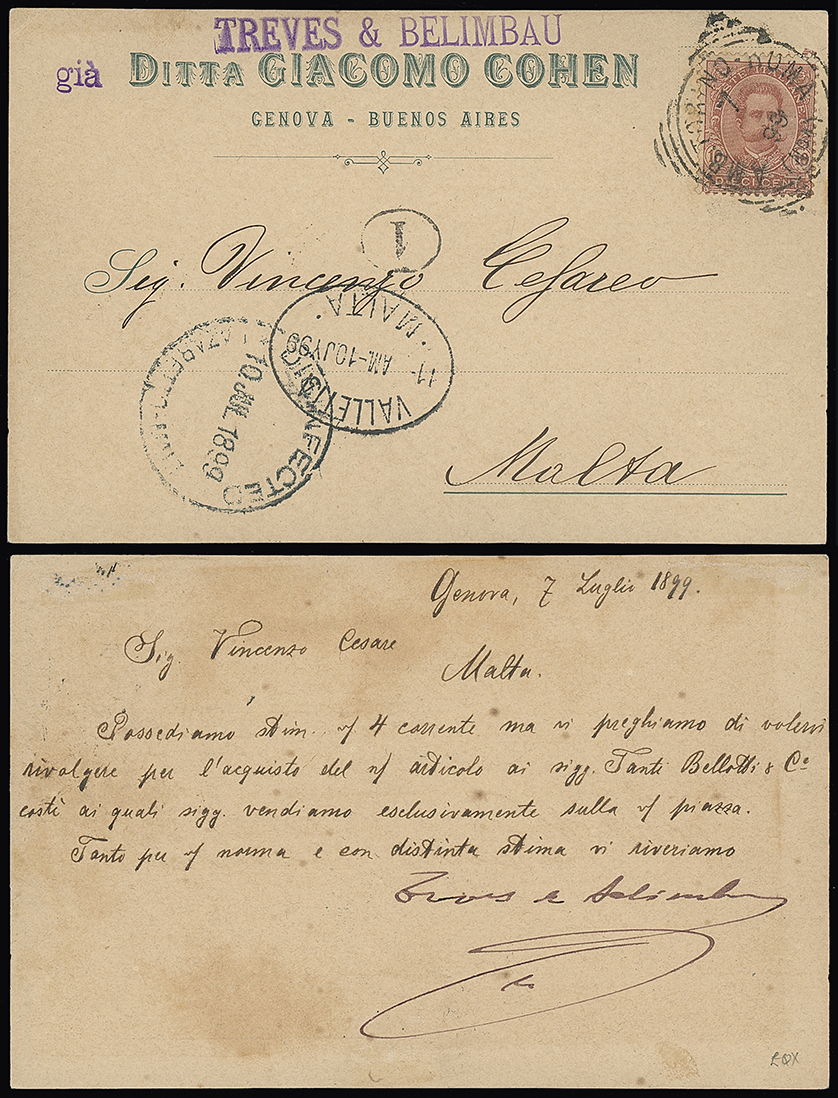 TREVES & BELIMBAU
già DITTA GIACOMO COHEN
GENOVA - BUENOS AIRES
DIECI CENT
AMB TORINO-ROMA
7
1
Sig. Vincenzo Cesareo
VALLETTA
11- AM-10JY99
MALTA
DISINFECTED
10 JUL 1899
LAZARETTO
Malta
Genova, 7 Luglio 1899.
Sig. Vincenzo Cesare
Malta.
Possediamo stim. v/ 4 corrente ma vi preghiamo di volervi
rivolgere per l'acquisto del n/ articolo ai sigg. Tanti Bellotti & Co
costì ai quali sigg. vendiamo esclusivamente sulla v/ piazza.
Tanto per v/ norma e con distinta stima vi riveriamo
Treves e Belimbau
EQX